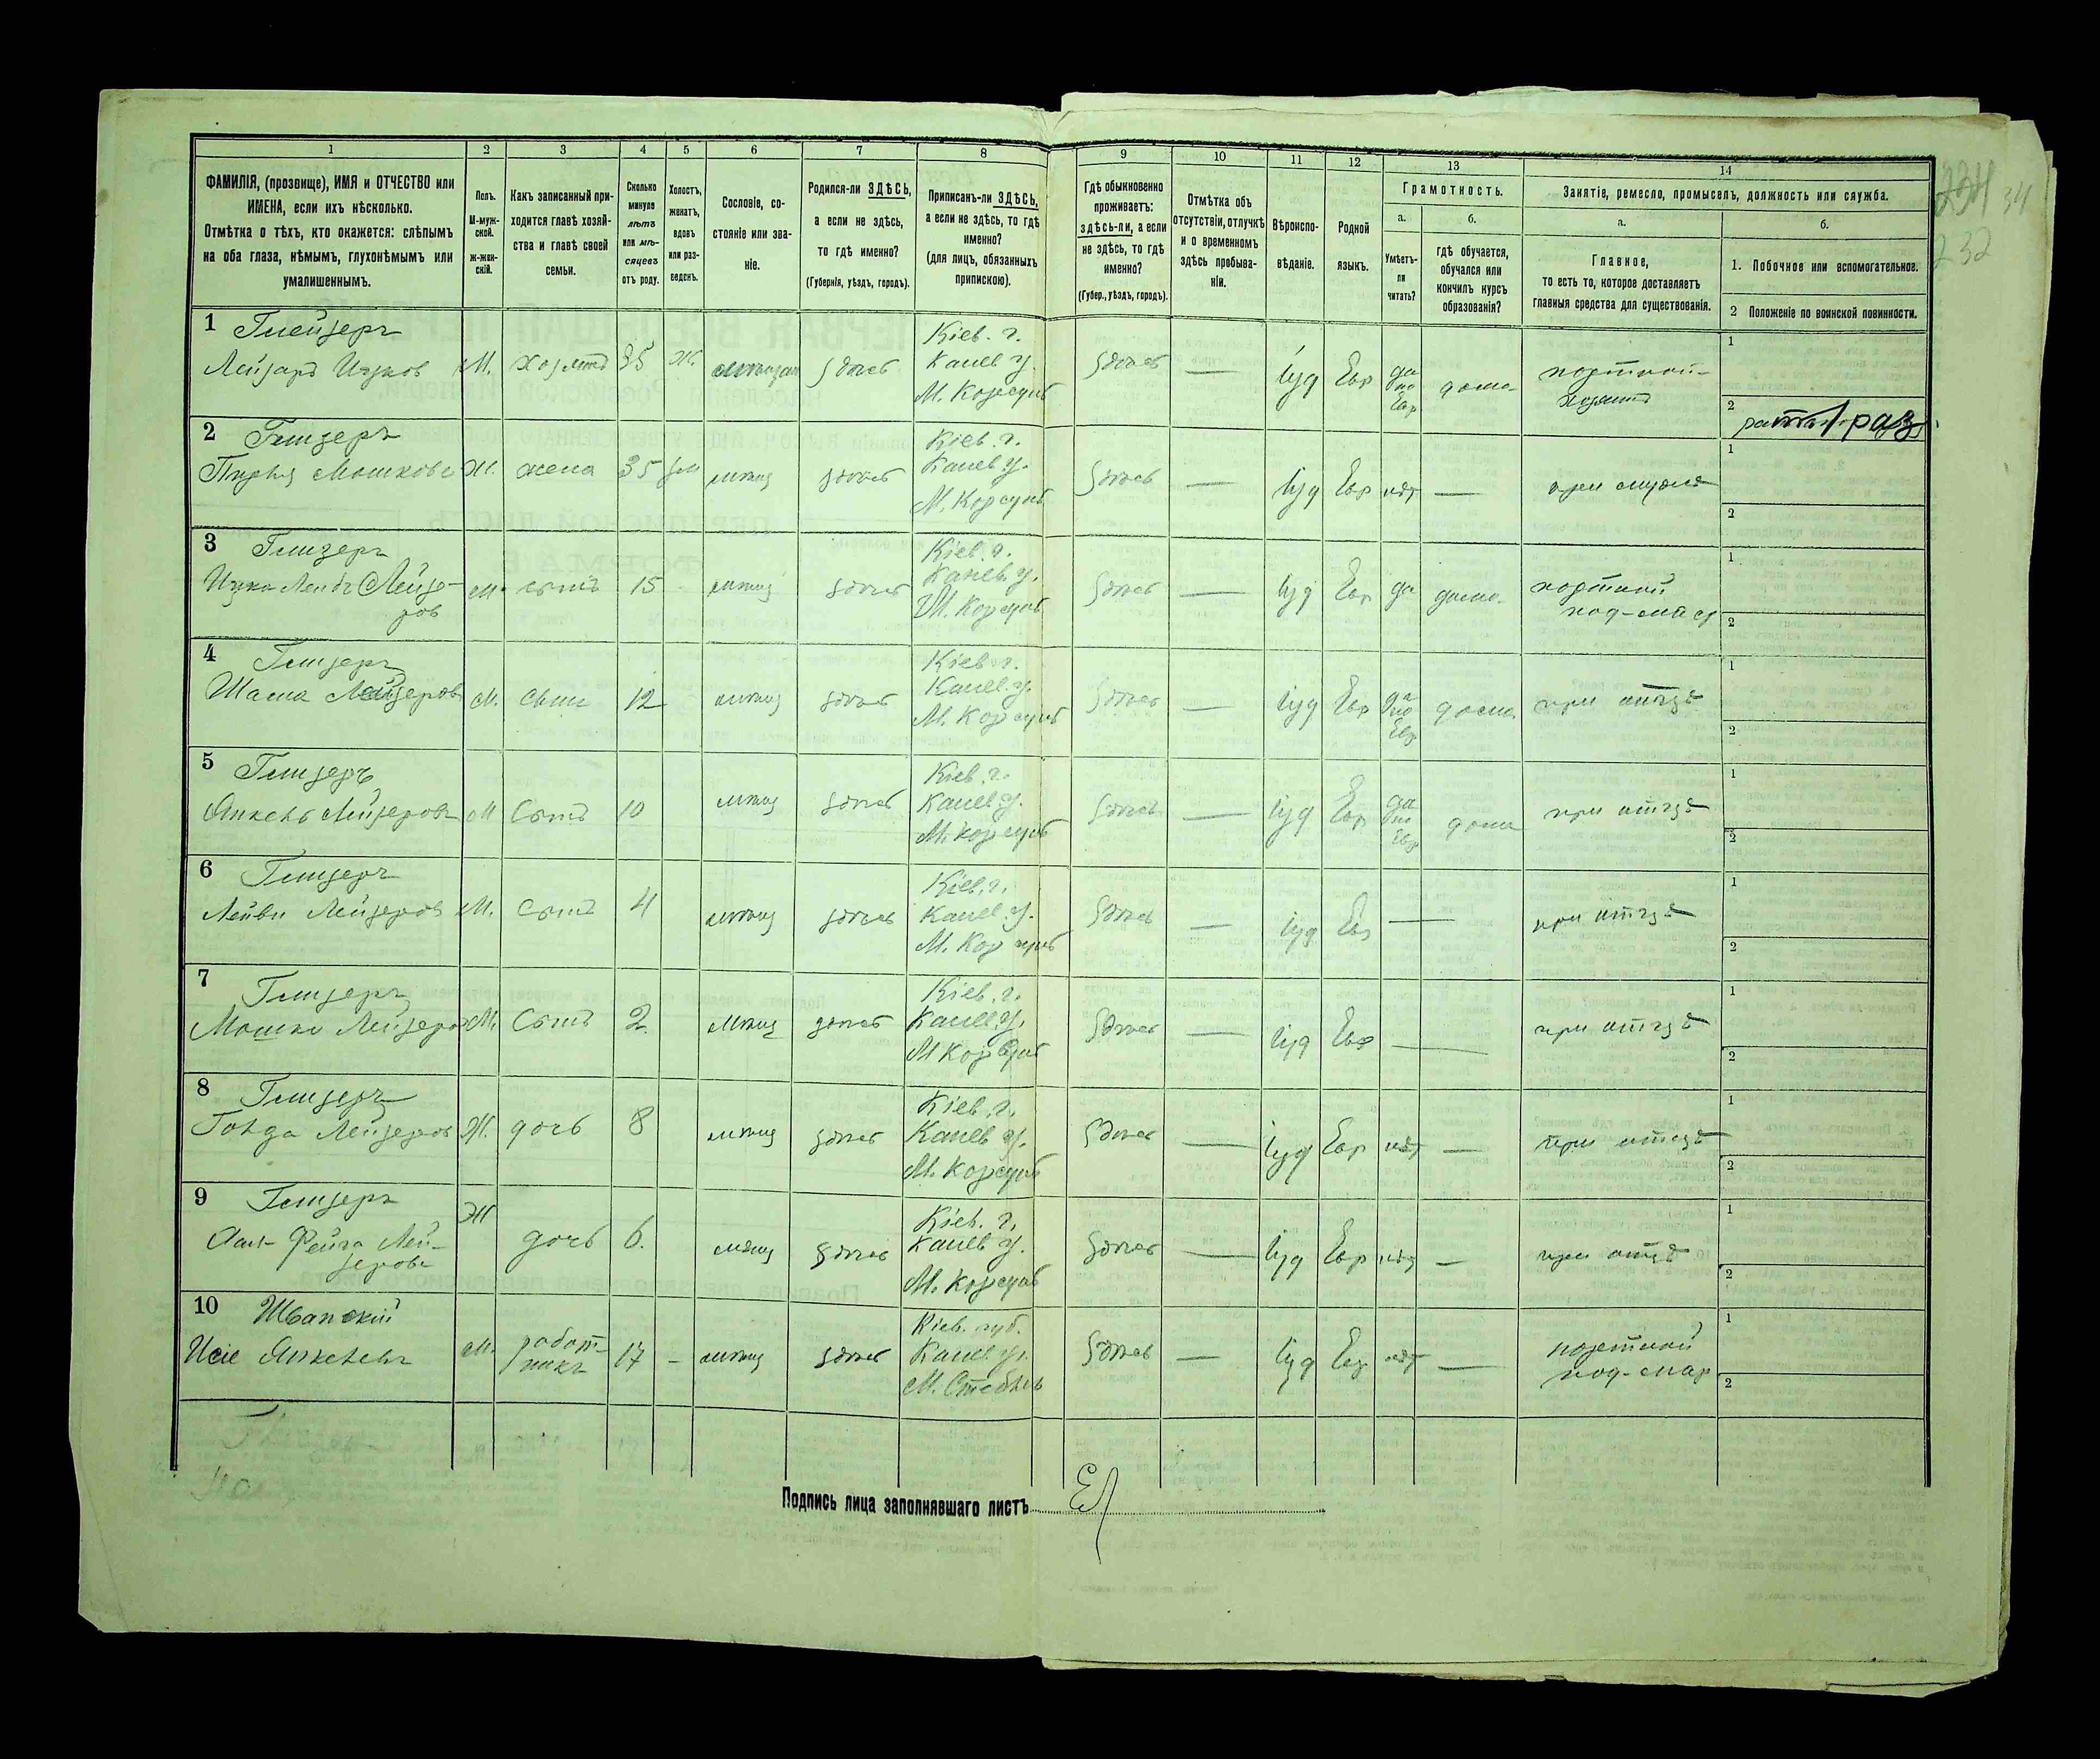 1 2 3 4 5 6 7 8 9 10 11 12 13 14
ФАМИЛІЯ, (прозвище), ИМЯ и ОТЧЕСТВО или
ИМЕНА, если ихъ нѣсколько.
Отмѣтка о тѣхъ, кто окажется: слѣпымъ
на оба глаза, нѣмымъ, глухонѣмымъ или
умалишеннымъ.
Полъ.
М-муж-
ской.
Ж-жен-
скій.
Какъ записанный при-
ходится главѣ хозяй-
ства и главѣ своей
семьи.
Сколько
минуло
лѣтъ
или мѣ-
сяцевъ
отъ роду.
Холостъ,
женатъ,
вдовъ
или раз-
веденъ.
Сословіе, со-
стояніе или зва-
ніе.
Родился-ли ЗДѢСЬ,
а если не здѣсь,
то гдѣ именно?
(Губернія, уѣздъ, городъ).
Приписанъ-ли ЗДѢСЬ,
а если не здѣсь, то гдѣ
именно?
(для лицъ, обязанныхъ
припискою).
Гдѣ обыкновенно
проживаетъ:
здѣсь-ли, а если
не здѣсь, то гдѣ
именно?
(Губер., уѣздъ, городъ).
Отмѣтка объ
отсутствіи, отлучкѣ
и о временномъ
здѣсь пребыва-
ніи.
Вѣроиспо-
вѣданіе.
Родной
языкъ.
Грамотность.
а.
Умѣетъ-
ли
читать?
б.
гдѣ обучается,
обучался или
кончилъ курсъ
образованія?
Занятіе, ремесло, промыселъ, должность или служба.
а.
Главное,
то есть то, которое доставляетъ
главныя средства для существованія.
б.
1. Побочное или вспомогательное.
2 Положеніе по воинской повинности.
234 34
232
1 Глейзеръ
Лейзаръ Ицков М. 35 ж. здѣсь
Кіев. г.
Канев у.
М. Корсунь
здѣсь — Іуд Евр да по Евр дома
портной
1
2
2 Глизеръ
Мошкова Ж. жена 35 здѣсь
Кіев. г.
Канев у.
М. Корсунь
здѣсь — Іуд Евр нѣт — при мужѣ
1
2
3 Глизеръ
Ицко Лейбъ Лейзе-
ров
М. сынъ 15 здѣсь
Кіев. г.
Канев. у.
М. Корсунь
здѣсь — Іуд Евр да дома
портной
под-мас
1
2
4 Глизеръ
Лейзеров М. сын 12 здѣсь
Кіев г.
Канев. у.
М. Корсунь
здѣсь — Іуд Евр да по Евр дома при отцѣ
1
2
5 Глизеръ
Янкель Лейзеров М Сынъ 10 здѣсь
Кіев. г.
Канев у.
М. Корсунь
здѣсь — Іуд Евр да по Евр дома при отцѣ
1
2
6 Глизеръ
Лейзеров М. Сынъ 4 здѣсь
Кіев. г.
Канев. у.
М. Корсунь
здѣсь — Іуд Евр — при отцѣ
1
2
7 Глизеръ
Мошко Лейзеров М. Сынъ 2 здѣсь
Кіев. г.
Канев у.
М Корсунь
здѣсь — Іуд Евр — при отцѣ
1
2
8 Глизеръ
Лейзеров Ж. дочь 8 здѣсь
Кіев. г.
Канев у.
М. Корсунь
здѣсь — Іуд Евр нѣт — при отцѣ
1
2
9 Глизеръ
Фейга Лей-
зерова
Ж дочь 6. здѣсь
Кіев. г.
Канев у.
М. Корсунь
здѣсь — Іуд Евр нѣт — при отцѣ
1
2
10
Янкелевъ М. работ-
никъ 17 — здѣсь
Кіев. губ.
Канев. у.
М. Стеблев
здѣсь — Іуд Евр нѣт —
портной
под-мас
1
2
Подпись лица заполнявшаго листъ